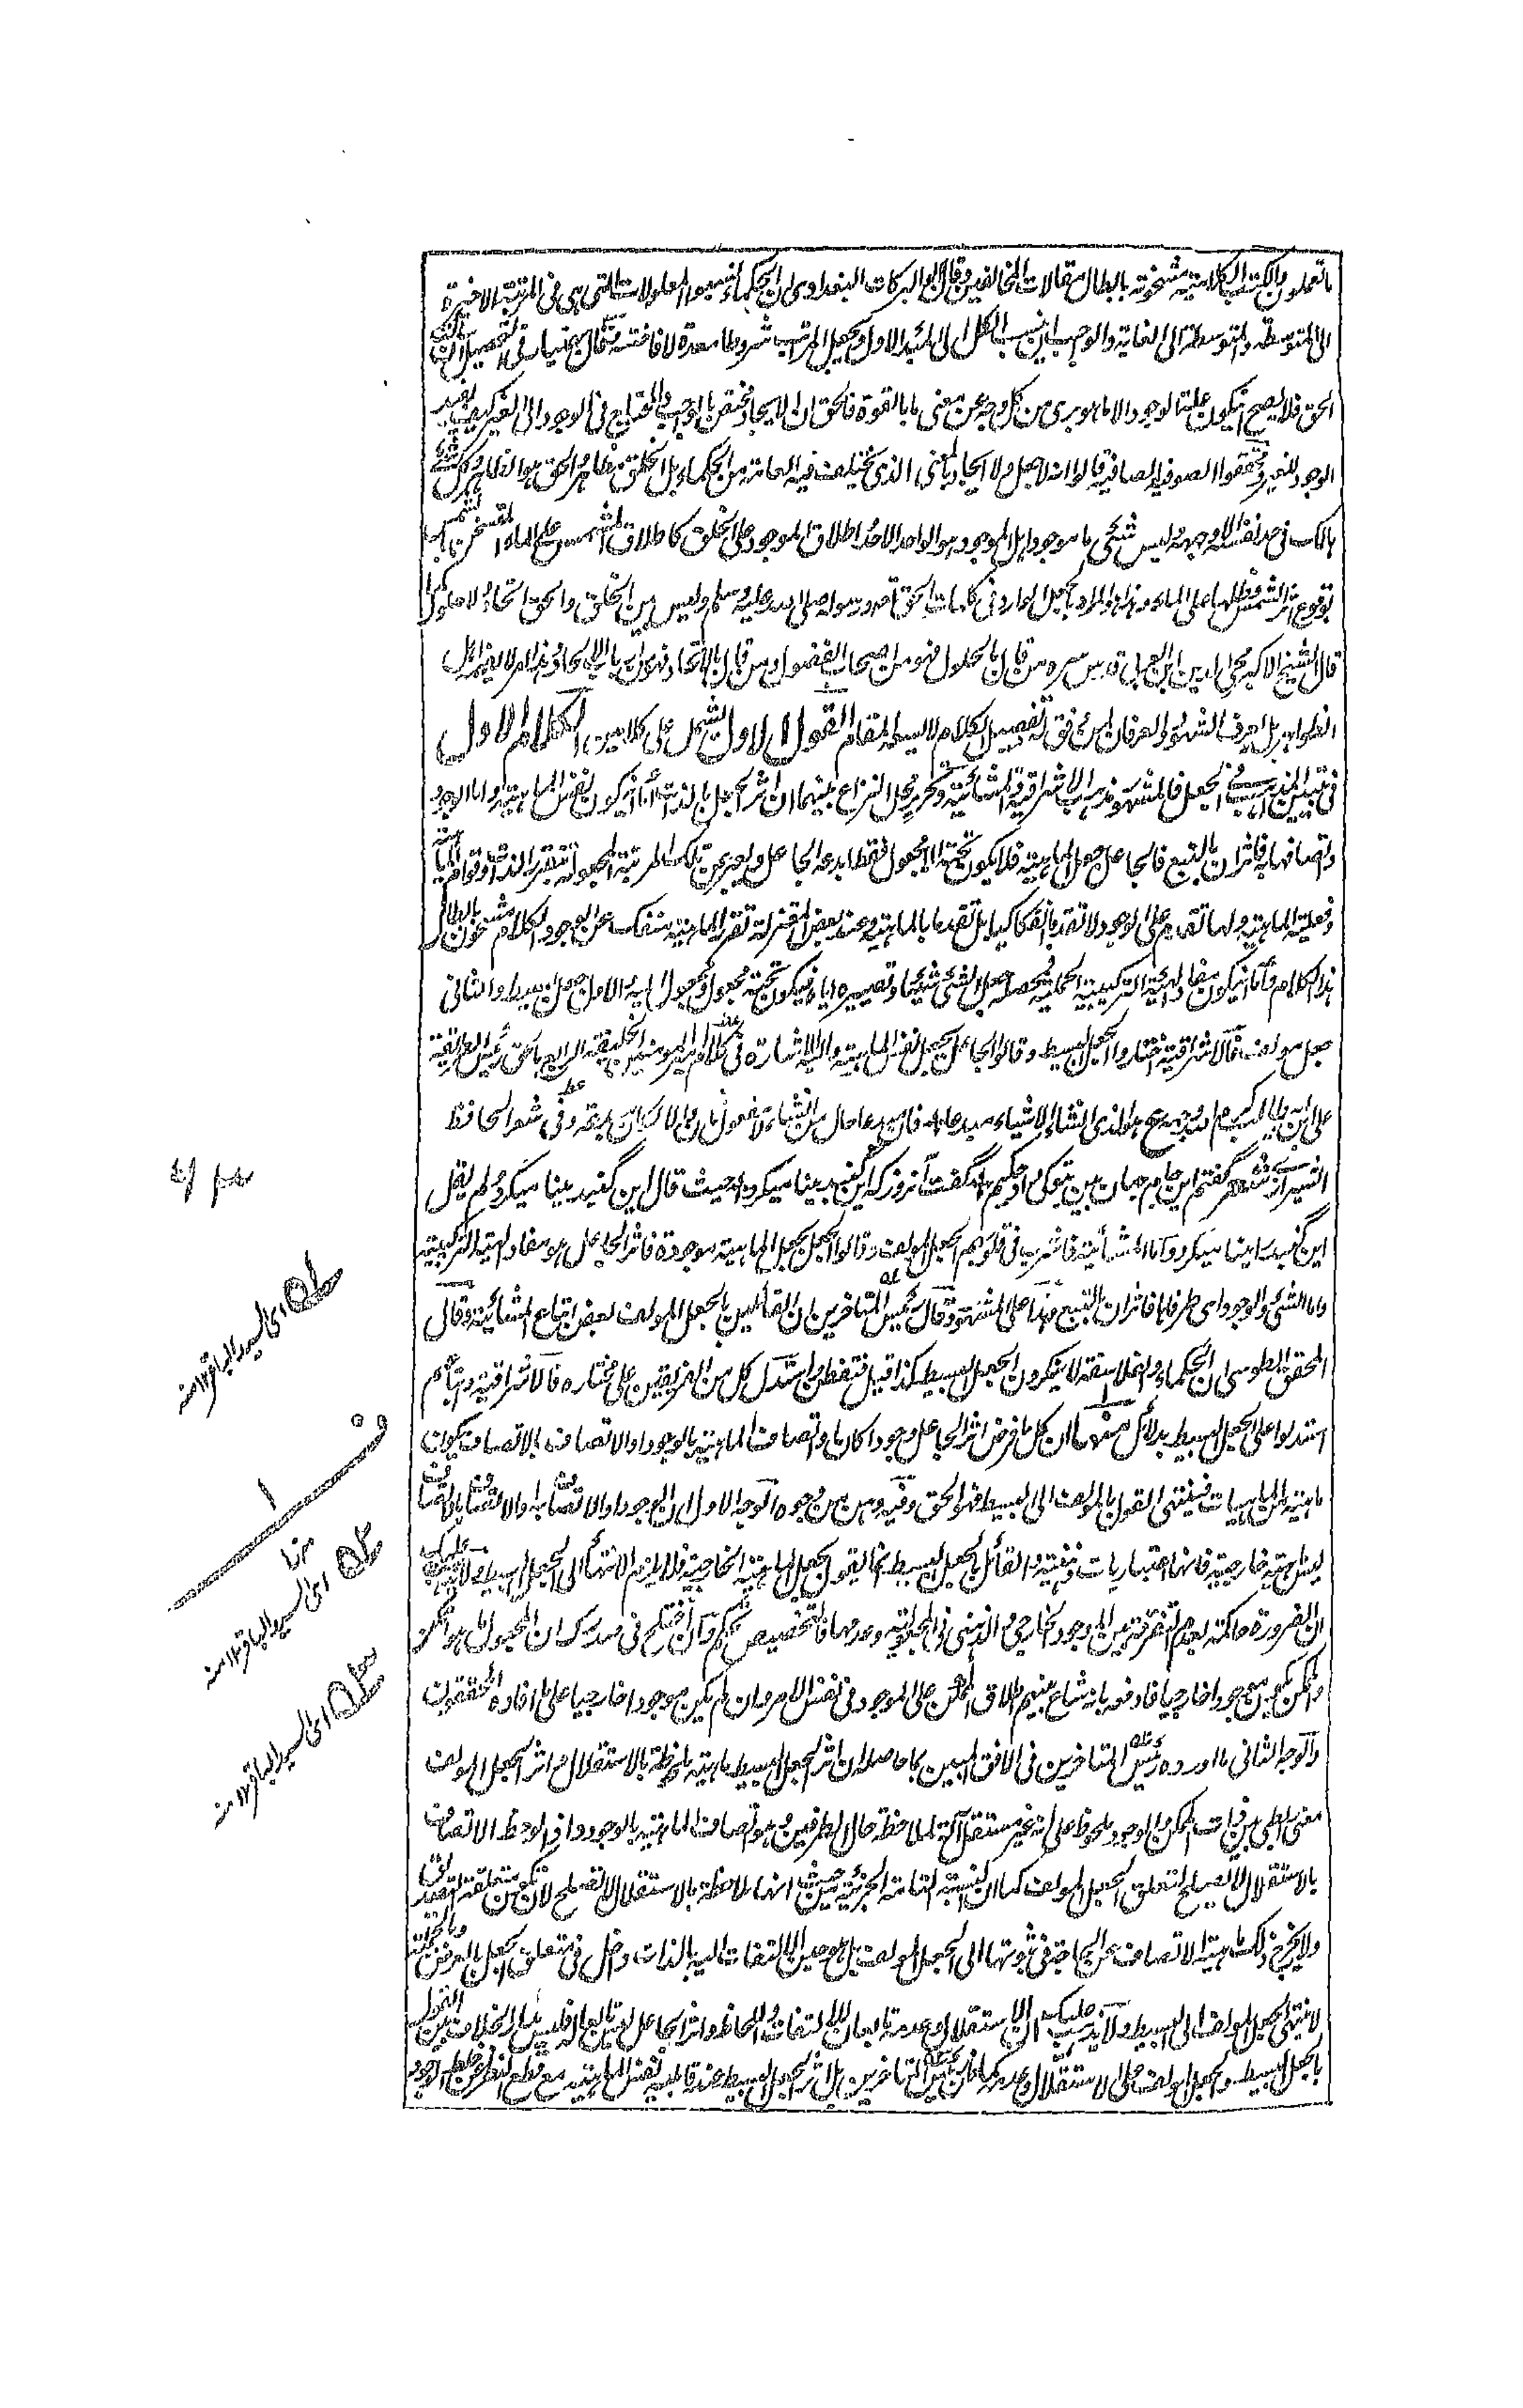 ما تعملون والكتب الكلامية مشحونة بابطال مقالات المخالفين وقال ابو البركات البغدادى ان الحكماء نسبوا المعلولات التى هى فى المرتبة الاخيرة
الى المتوسطة والمتوسطة الى العالية والواجب ان ينسب الكل الى المبدء الاول ويجعل المراتب شروطا معدة لافاضته وقال بهمنيار فى التحصيل ان
الحق فلا يصح ان يكون علة الوجود الا ما هو برى من كل وجه عن معنى ما بالقوة فالحق ان الايجاد مختص بالواجب والمحتاج فى الوجود الى الغير كيف يفيد
الوجود للغير ومحققوا الصوفية الصافية قالوا انه لا جعل ولا ايجاد بالمعنى الذى تختلف فيه العامة من الحكماء بل الخلق مظاهر الحق هو الظاهر وكل شئ
هالك فى حد نفسه الا وجهه وليس شئ ما موجودا بل الموجود هو الواحد الاحد اطلاق الموجود على الخلق كاطلاق المشمس على الماء المتسخن
بوقوع اثر الشمس وظلها على الماء وهذا هو المراد بالجعل الوارد فى كلمات الحق تعالى ورسوله صلى الله عليه وسلم وليس بين الخلق والحق اتحاد ولا حلول
قال الشيخ الاكبر محى الدين ابن العربى قدس سره من قال بالحلول فهو من اصحاب الفضول ومن قال بالاتحاد فهو من ارباب الالحاد وهذا امر لا يعرفه اهل
الظواهر بل يعرفه اهل الشهود والعرفان لمن وفق له تفصيل الكلام لا يسعه المقام القول الاول المشتمل على كلامين الكلام الاول
فى تبيين المذاهب فى الجعل فالمشهور مذهب الاشراقية والمشائية وتحرير محل النزاع بينهما ان اثر الجعل بالذات اما ان يكون نفس الماهية واما الوجود
واتصافها به فاثران بالتبع فالجاعل جعل الماهية فلا يكون ثمة الا مجعول فقط ابدعه الجاعل ويعبر عن تلك المرتبة المجعولة بتقرر الذات وقوام الماهية
وفعلية الماهية ولها تقدم على الوجود لا تقدما بالفكاكيا بل تقدما بالماهية وعند بعض المعتزلة تقرر الماهية منفك عن الوجود والكلام مشحون بابطال
هذا الكلام واما ان يكون مفاد الهيئة التركيبية الحملية فمحصله جعل الشئ شيئا وتصييره اياه فيكون ثمة مجعول ومجعول اليه الاول جعل بسيط والثانى
جعل مولف فالاشراقية اختاروا الجعل البسيط وقالوا الجاعل يجعل نفس الماهية واليه الاشارة فى كلام امير المومنين الخليفة الرابع بالحق رئيس الطريقة
على ابن ابى طالب كرم الله وجهه هو الذى انشاء الاشياء مبدعا فان مبدعا حال من انشاء لا مفعول ثان والا لكان بدعة وفى شعر الحافظ
الشيرازى شعر گفتم اين جام جهان بين بتو كى داد حكيم گفت آنروز كه اين گنبد مينا ميكرد حيث قال اين گنبد مينا ميكرد ولم يقل
اين گنبد را مينا ميكرد واما المشائية فاشرب فى قلوبهم الجعل المولف وقالوا الجاعل يجعل الماهية موجودة فاثر الجاعل هو مفاد الهيئة التركيبية
واما الشئ والوجود اى طرفاها فاثران بالتبع هذا على المشهور وقال رئيس المتاخرين ان القائلين بالجعل المولف بعض اتباع المشائية وقال
المحقق الطوسى ان الحكماء والفلاسفة لا ينكرون الجعل البسيط كذا قيل فتفطن واستدل كل من الفريقين على مختاره فالاشراقية واتباعهم
استدلوا على الجعل البسيط بدلائل منها ان كل ما فرض اثر الجاعل وجودا كان او اتصاف الماهية بالوجود او الاتصاف بالاتصاف يكون
ماهية من الماهيات فينتهى القول بالمولف الى البسيط فهو الحق وفيه وهن من وجوه الوجه الاول ان الوجود والاتصاف به والاتصاف بالاتصاف
ليس ماهية خارجية فانها اعتباريات ذهنية والقائل بالجعل البسيط انما يقول بجعل الماهية الخارجية فلا يلزم الانتهاء الى الجعل البسيط ولا يذهب عليك
ان الضرورة حاكمة بعدم التفرقة بين الموجود الخارجى والذهنى فى المجعولية وعدمها فالتخصيص تحكم وان اختلج فى صدرك ان المجعول ما هو ممكن
والممكن يكون موجودا خارجيا فادفعه بانه شاع بينهم اطلاق الممكن على الموجود فى نفس الامر وان لم يكن موجودا خارجيا على ما افاده المحققون
والوجه الثانى ما اورده رئيس المتاخرين فى الافق المبين كما حاصله ان اثر الجعل البسيط ماهية ملحوظة بالاستقلال واثر الجعل المولف
معنى رابطى بين ذات الممكن والوجود ملحوظ على انه غير مستقل آلة لملاحظة حال الطرفين وهو اتصاف الماهية بالوجود واذا لوحظ الاتصاف
بالاستقلال لا يصلح لتعلق الجعل المولف كما ان النسبة التامة الخبرية من حيث انها ملاحظة بالاستقلال لا تصلح لان تكون متعلقة التصديق
ولا يخرج ذلك ماهية الاتصاف عن الحاجة فى ثبوتها الى الجعل المولف بل هو حين الالتفات اليه بالذات داخل فى متعلق الجعل بالعرض وبالجملة
لا ينتهى الجعل المولف الى البسيط ولا يذهب عليك ان الاستقلال وعدمه تابعان للالتفات واللحاظ واثر الجاعل ليس تابعا له فليس بناء الخلاف بين القول
بالجعل البسيط والجعل المولف على الاستقلال وعدمه كما ظن رئيس المتاخرين بل اثر الجعل البسيط عند قائليه نفس الماهية مع قطع النظر عن خلط الوجود
اى السيد الباقر ١٢ منه
اى السيد الباقر ١٢ منه
اى السيد الباقر ١٢ منه